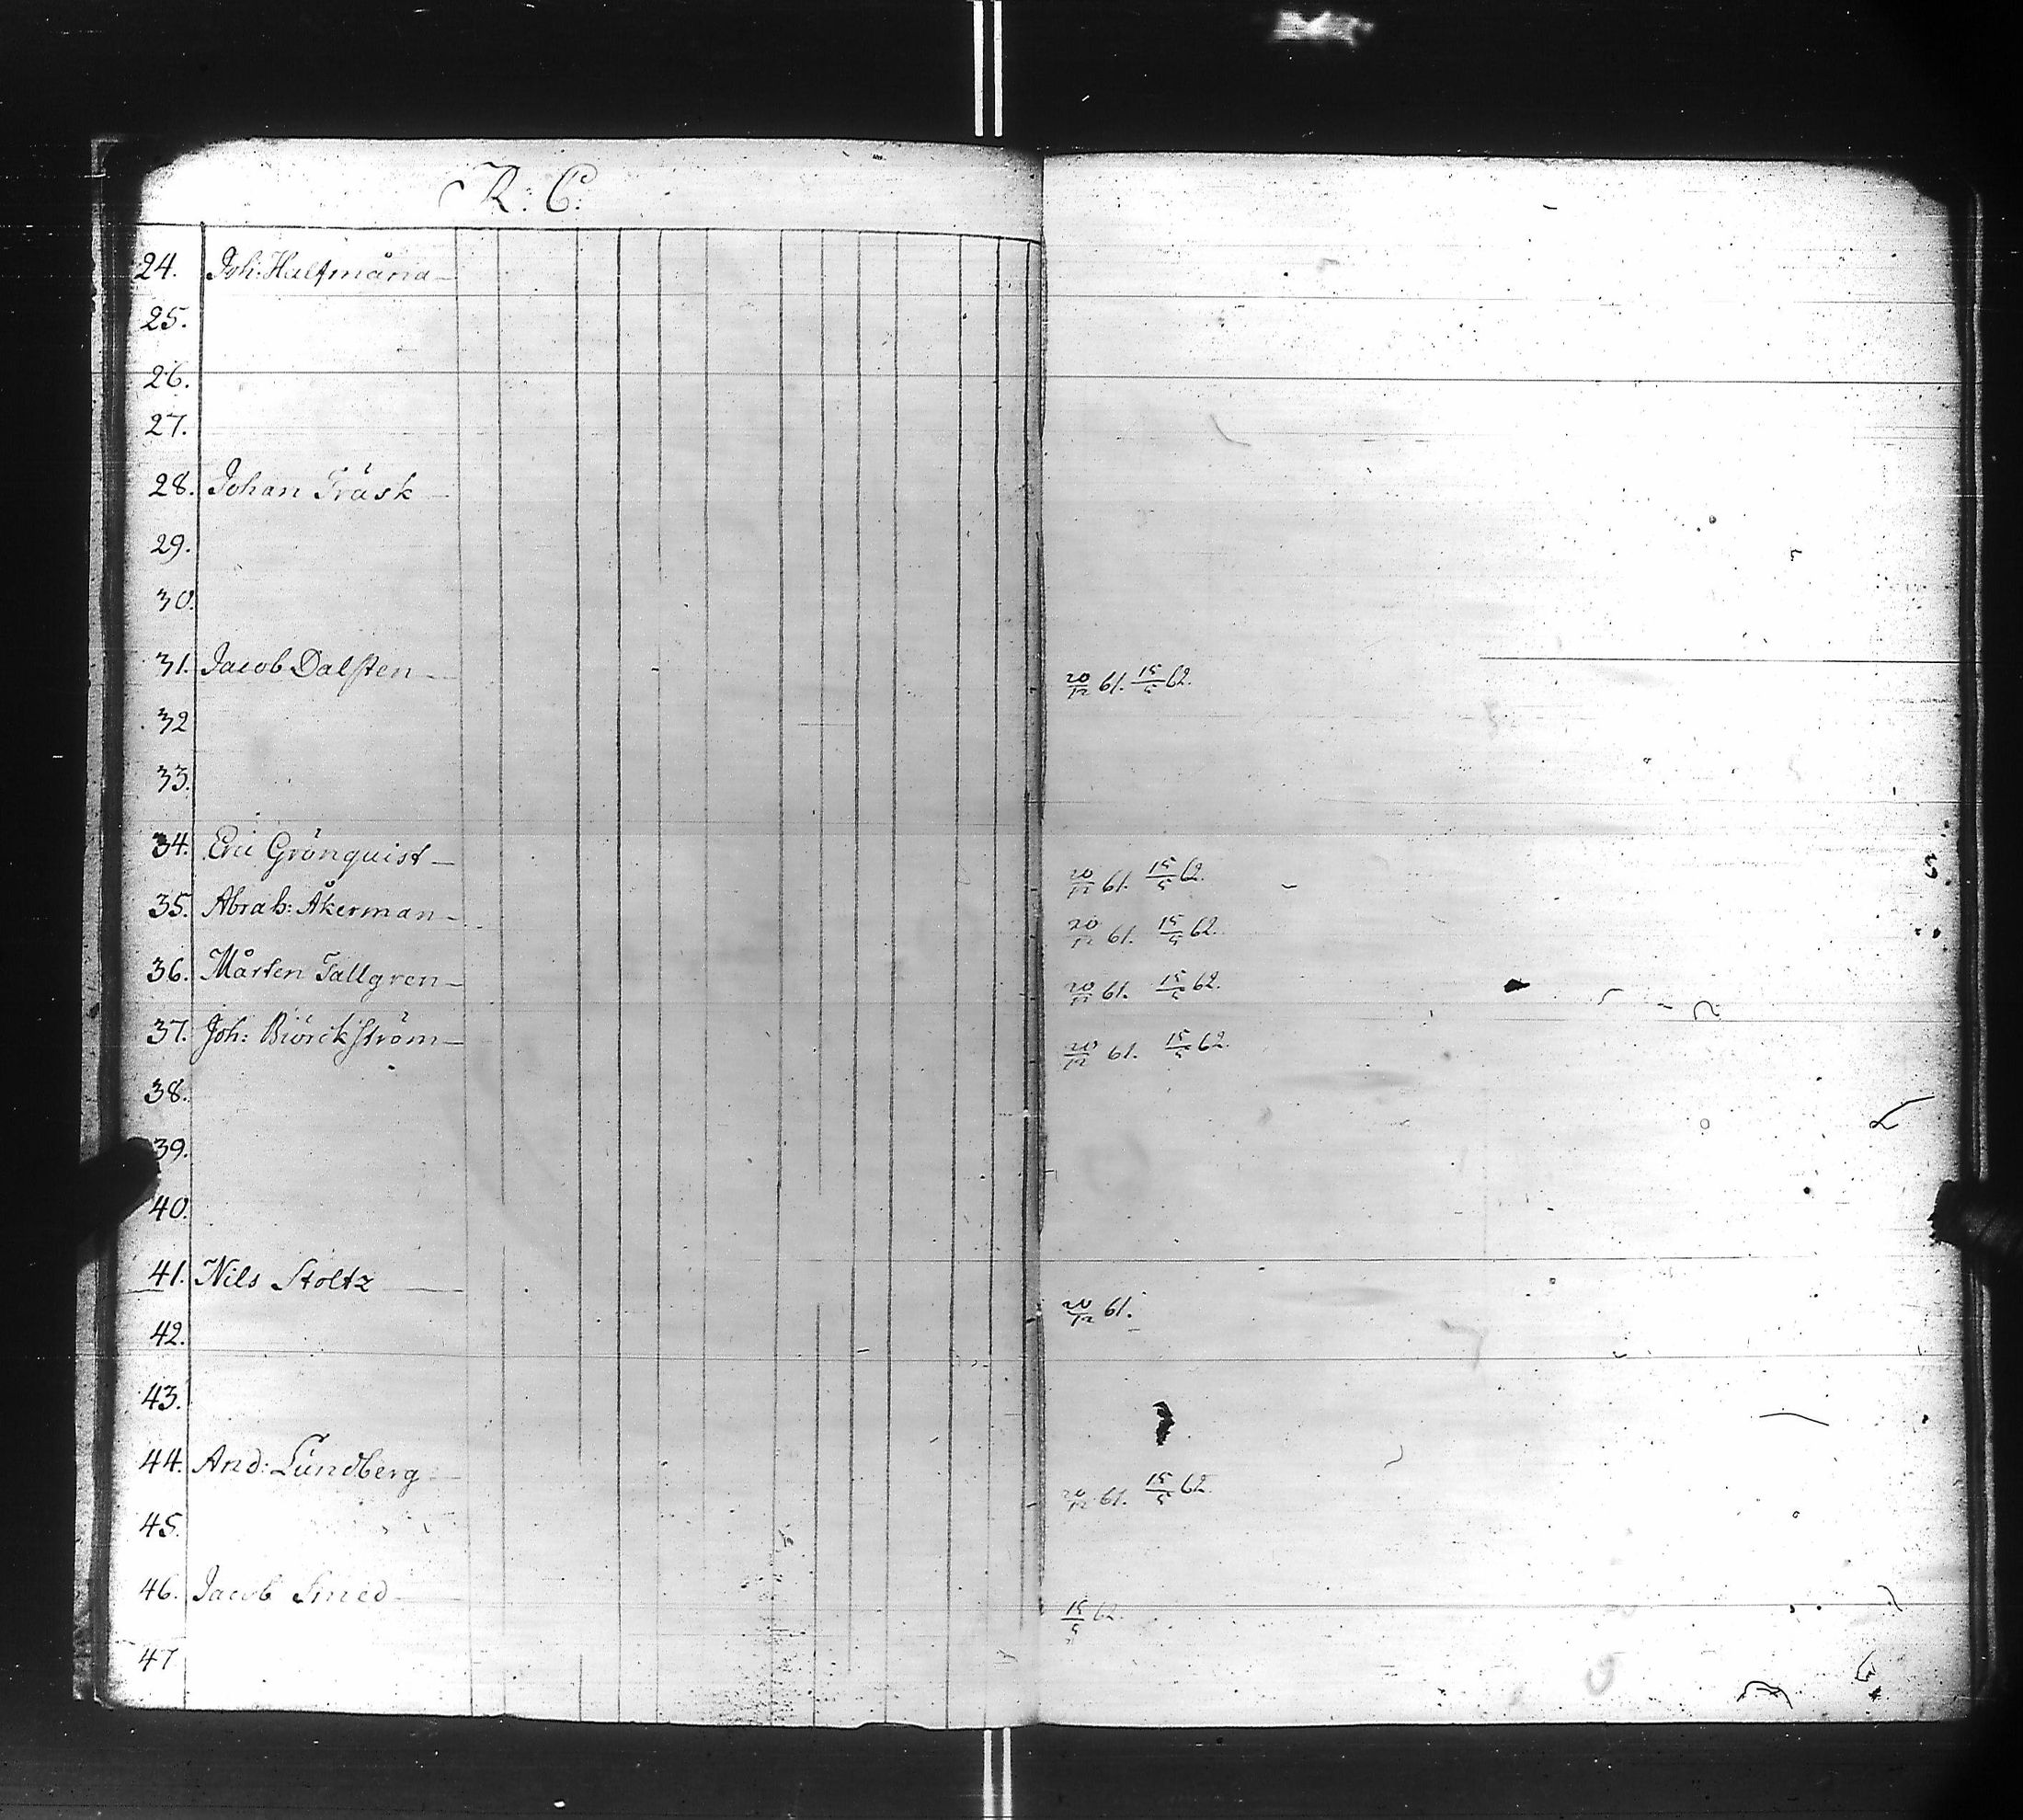 R: C:
24. Joh: Halfmåna 
25.
26.
27.
28. Johan Träsk
29.
30.
31. Jacob Dalsten 20/12 61. 15/5 62.
32
33.
34. Eric Grönquist 20/12 61. 15/5 62.
35. Abrah: Åkerman 20/12 61. 15/5 62.
36. Mårten Tallgren 20/12 61. 15/5 62.
37. Joh: Biörckström 20/12 61. 15/5 62.
38.
39.
40.
41. Nils Stoltz 20/12 61.
42.
43.
44. And: Lundberg 20/12 61. 15/5 62.
45.
46. Jacob Smed 15/5 62.
47